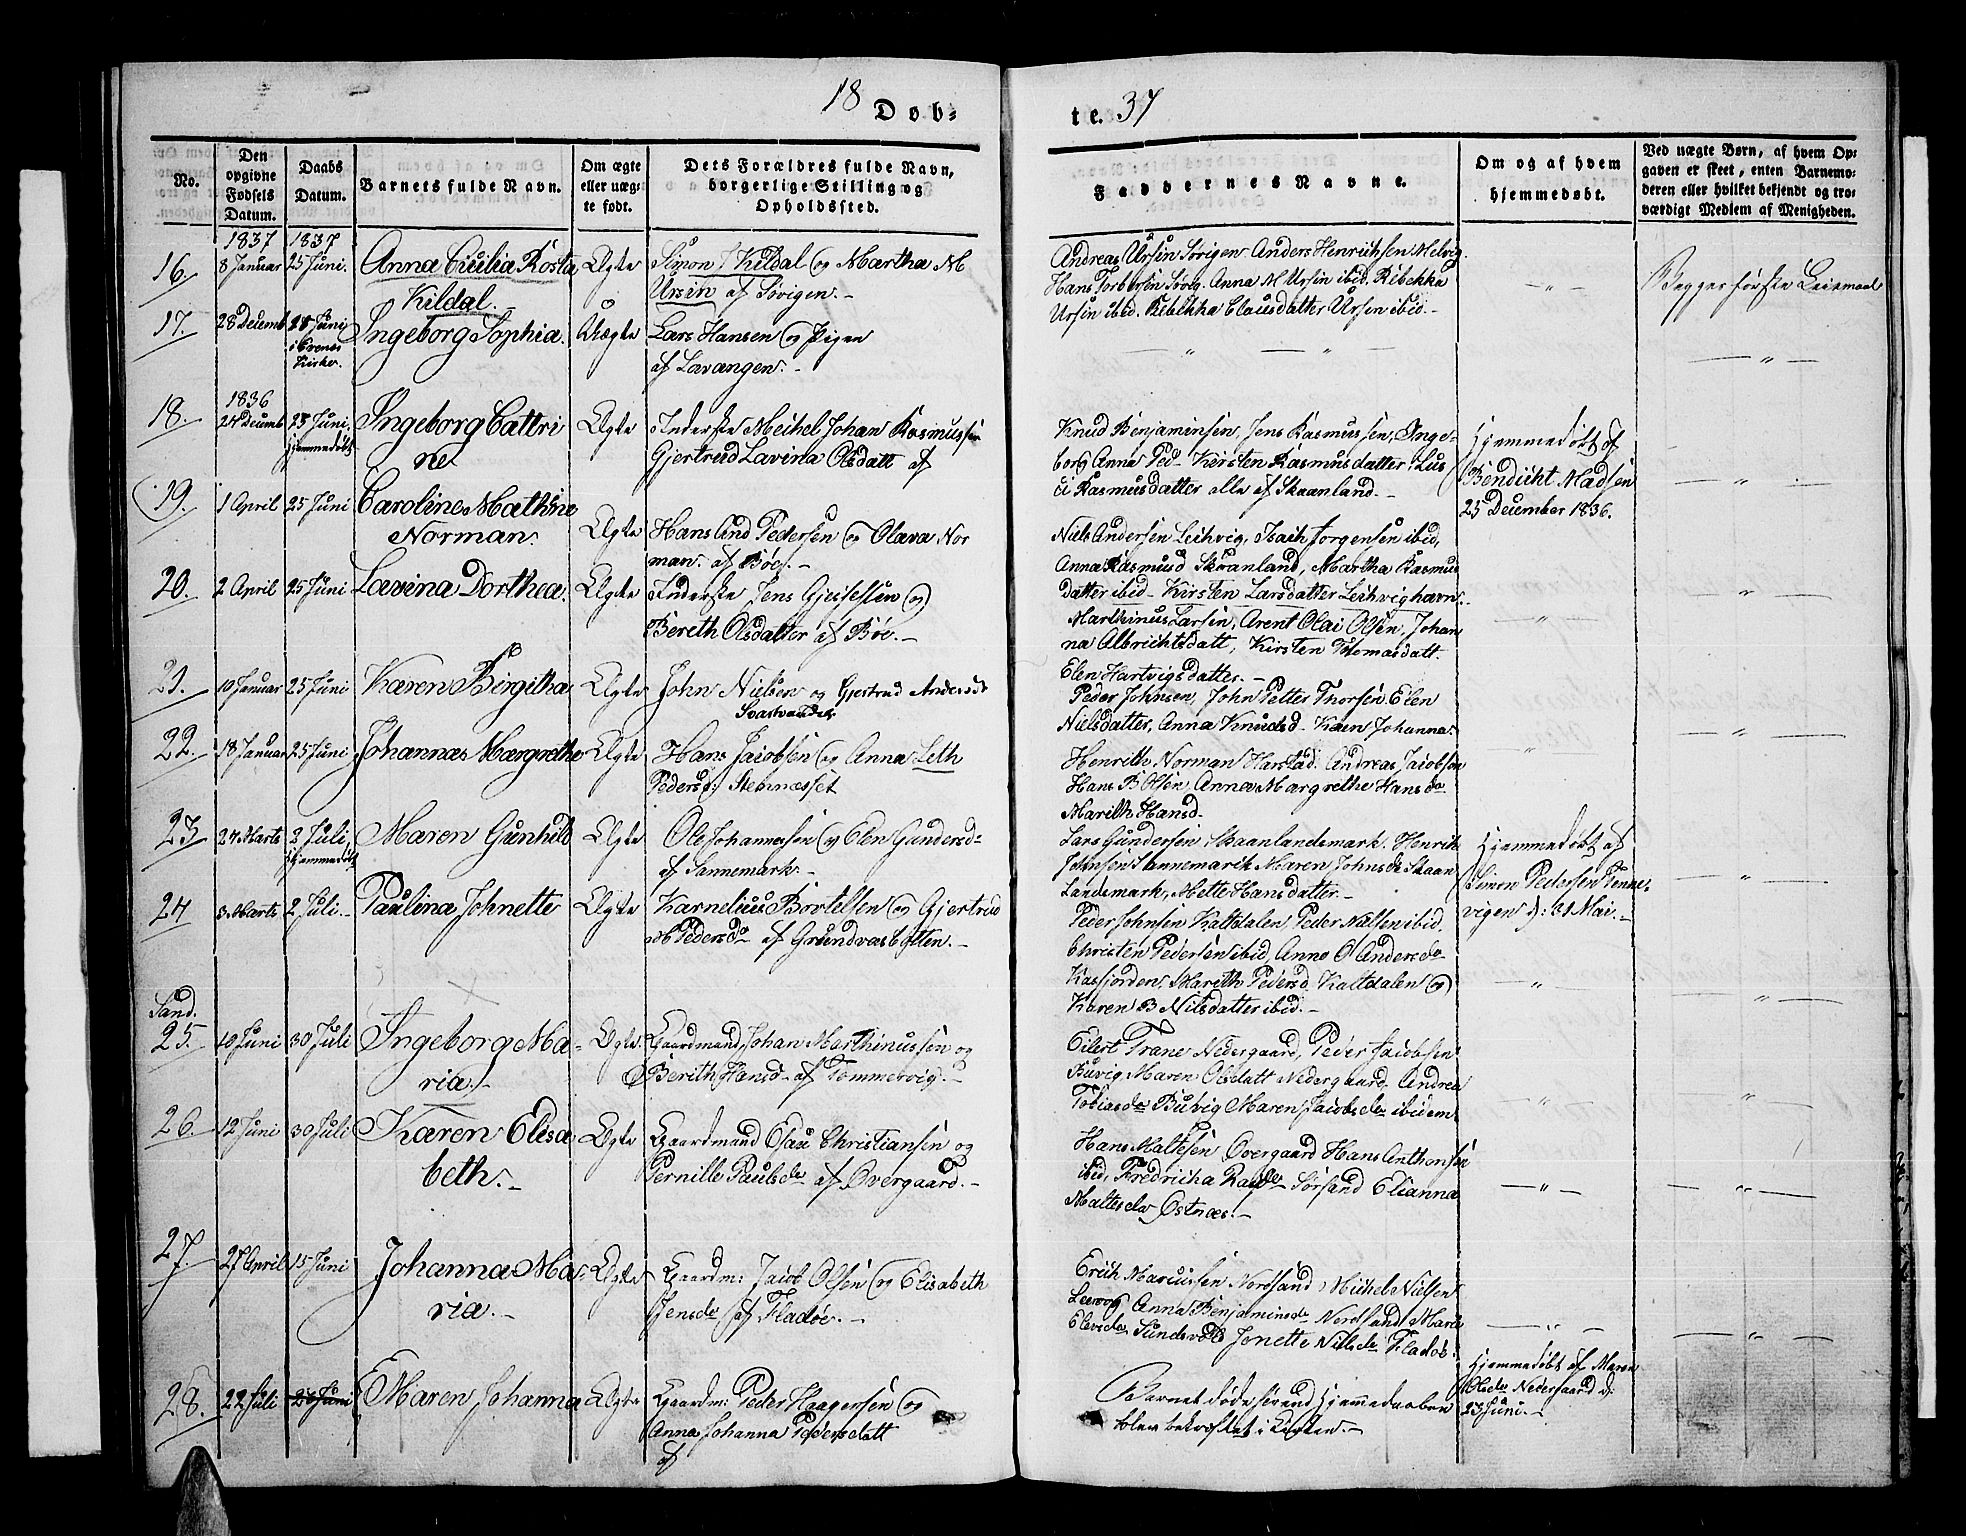 18 Døb-
te. 37
No.
Den opgivne Fødsels Datum.
Daabs Datum.
Barnets fulde Navn.
Om ægte eller uægte født.
Dets Forældres fulde Navn, borgerlige Stilling og Opholdssted.
Faddernes Navne.
Om og af hvem hjemmedøbt.
Ved uægte Børn, af hvem Opgaven er skeet, enten Barnemoderen eller hvilket bekjendt og troværdigt Medlem af Menigheden.
16. 1837 8 Januar 1837 25 Juni. Anna Cicilia Rosta Kildal. Ægte
Simon J Kildal og Martha M
Ursin af Sørigen.
Andreas Ursin Sørigen Anders Henrichsen Melvig
Hans Torbersen Sørig. Anna M Ursin ibid. Ribekka
Ursin ibid. Ribekka Clausdatter Ursin ibid.
Begges første Leiermaal
17. 28 Decemb 28 Juni i Ibenes Kirke. Ingeborg Sophia. Uægte
Lars Hansen og Pigen
af Lavangen.
18. 1836 24 Decemb 25 Juni. hjemmedøbt Ingeborg Cattrine Ægte
Inderste Meihel Johan Rasmussen
Gjertrud Lavina Olsdatt af
Knud Benjaminsen, Jens Rasmussen, Inge-
borg Anna Ped Kirsten Rasmusdatter Lus
ci Rasmusdatter alle af Skaanland.
Hjemmedøbt af
Bendicht Madsen
25 December 1836.
19. 1 April 25 Juni Caroline Mathine Norman. Ægte
Hans And Pedersen og Olava Nor
man. af Bøe.
Niels Andersen Leihvig, Isach Jorgensen ibid,
Anna Rasmusd Skaanland, Martha Rasmus
datter ibid. Kirsten Larsdatter Leihvighavn.
20. 2 April 25 Juni Lavina Dorthea. Ægte
Inderste Jens Gjertsen og
Bereth Olsdatter af Bøe.
Marthinus Larsen, Arent Olai Olsen, Johan
na Albrichtsdatt, Kirsten Thomasdatt.
Elen Hartvigsdatter.
21. 10 Januar 25 Juni Karen Birgitha Ægte
John Nielsen og Gjertrud Andersdt
Svartvandet
Peder Johnsen, John Petter Thorsen Elen
Nielsdatter, Anna Knudsd. Karen Johanna
22. 18 Januar 25 Juni Johannas Margrethe Ægte
Hans Jacobsen og Anna Leth
Pedersd: Stennesset
Henrich Norman Harstad. Andreas Jacobsen
Hans B Olsen Anna Margrethe Hansda
Marith Hansd.
23 24 Marts 2 Juli, hjemmedøbt Maren Gunhild Ægte
Ole Johannesen og Elen Gundersd
af Sannemark.
Lars Gundersen Skaanlandsmark. Henrich
Johnsen Sannemarik Maren Johnsdt Skaan
Landsmark, Mette Hansdatter.
Hjemmedøbt af
Simon Pedersen Tenne-
vigen d: 31 Mai.
24 3 Marts 2 Juli. Paulina Johnette Ægte
Karnelius Bortelsen og Gjertrud
M Pedersda af Grundvasbotten.
Peder Johnsen Kaltdalen, Peder Nilsen ibid.
Christen Pedersen ibid, Anno O Andersda
Kasfjorden. Marith Pedersd Kaltdalen og
Karen B Nilsdatter ibid.
Sand.
25. 10 Juni 30 Juli Ingeborg Maria. Ægte
Gaardmand Johan Marthinussen og
Berith Hansd. af Tømmervig.
Eilert Trane Nedergaard, Peder Jacobsen
Buvig Maren Olsdatt Nedergaard, Andrea
Tobiasda Buvig Maren Jacobsda ibidem
26. 12 Juni 30 Juli Karen Elisabeth. Ægte
Gaardmand Esau Christiansen og
Pernille Paulsda af Øvergaard.
Hans Maltesen Øvergaard Hans Anthonsen
ibid, Fredricha Sørsand Elianna
Maltesda Østnæs.
27. 27 April 15 Juni Johanna Maria. Ægte
Gaardm: Jacob Olsen og Elisabeth
Jensda af Fladøe.
Erich Marcussen Nordsand, Michel Nielsen
Anna Benjaminsda Nordsand Maria
Elevsda Jonette Nielsda Fladøe.
28. 22 Juli Maren Johanna Ægte
Gaardm: Peder Haagensen og
Anna Johanna Pedersdatt
af
Barnet døde førend hjemmedaaben
blev bekræftet i Kirken.
Hjemmedøbt af Maren
Olsda Nedergaard d:
23 Juni.